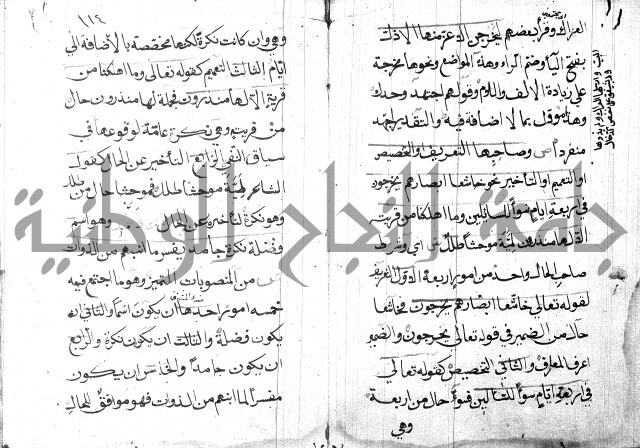 العراك وقرأ بعضهم ليخرجن الاعز منها الاذل
بفتح اليا وضم الراء وهذه المواضع ونحوها مخرجة
على زيادة الالف واللام وقولهم اجتهد وحدك
وهذا مؤول بما لا اضافة فيه والتقدير اجتهد
منفردا ص وصاحبها التعريف او التخصيص
او التعميم او التأخير نحو خاشعا ابصارهم يخرجون
في اربعة ايام سواء للسائلين وما اهلكنا من قرية
الا لها منذرون لمية موحشا طلل ش اي وشرط
صاحب الحال واحد من امور اربعة الاول التعريف
كقوله تعالى خاشعا ابصارهم يخرجون فخاشعا
حال من الضمير في قوله تعالى يخرجون والضمير
اعرف المعارف والثاني التخصيص كقوله تعالى
في اربعة ايام سواء للسائلين فسواء حال من اربعة
وهي
١١٤
وهي وان كانت نكرة لكنها مخصصة بالاضافة الى
ايام الثالث التعميم كقوله تعالى وما اهلكنا من
قرية الا لها منذرون فجملة لها منذرون حال
من قرية وهي نكرة عامة لوقوعها في
سياق النفي الرابع التأخير عن الحال كقول
الشاعر لمية موحشا طلل فموحشا حال من طلل
وهو نكرة لتأخيره عن الحال وهو اسم
فضلة نكرة جامد يفسر ما انبهم من الذوات
ش من المنصوبات التمييز وهو ما اجتمع فيه
خمسة امور احدها ان يكون اسما والثاني ان
يكون فضلة والثالث ان يكون نكرة والرابع
ان يكون جامدا والخامس ان يكون
مفسرا لما انبهم من الذوات فهو موافق للحال
جامعة النجاح الوطنية